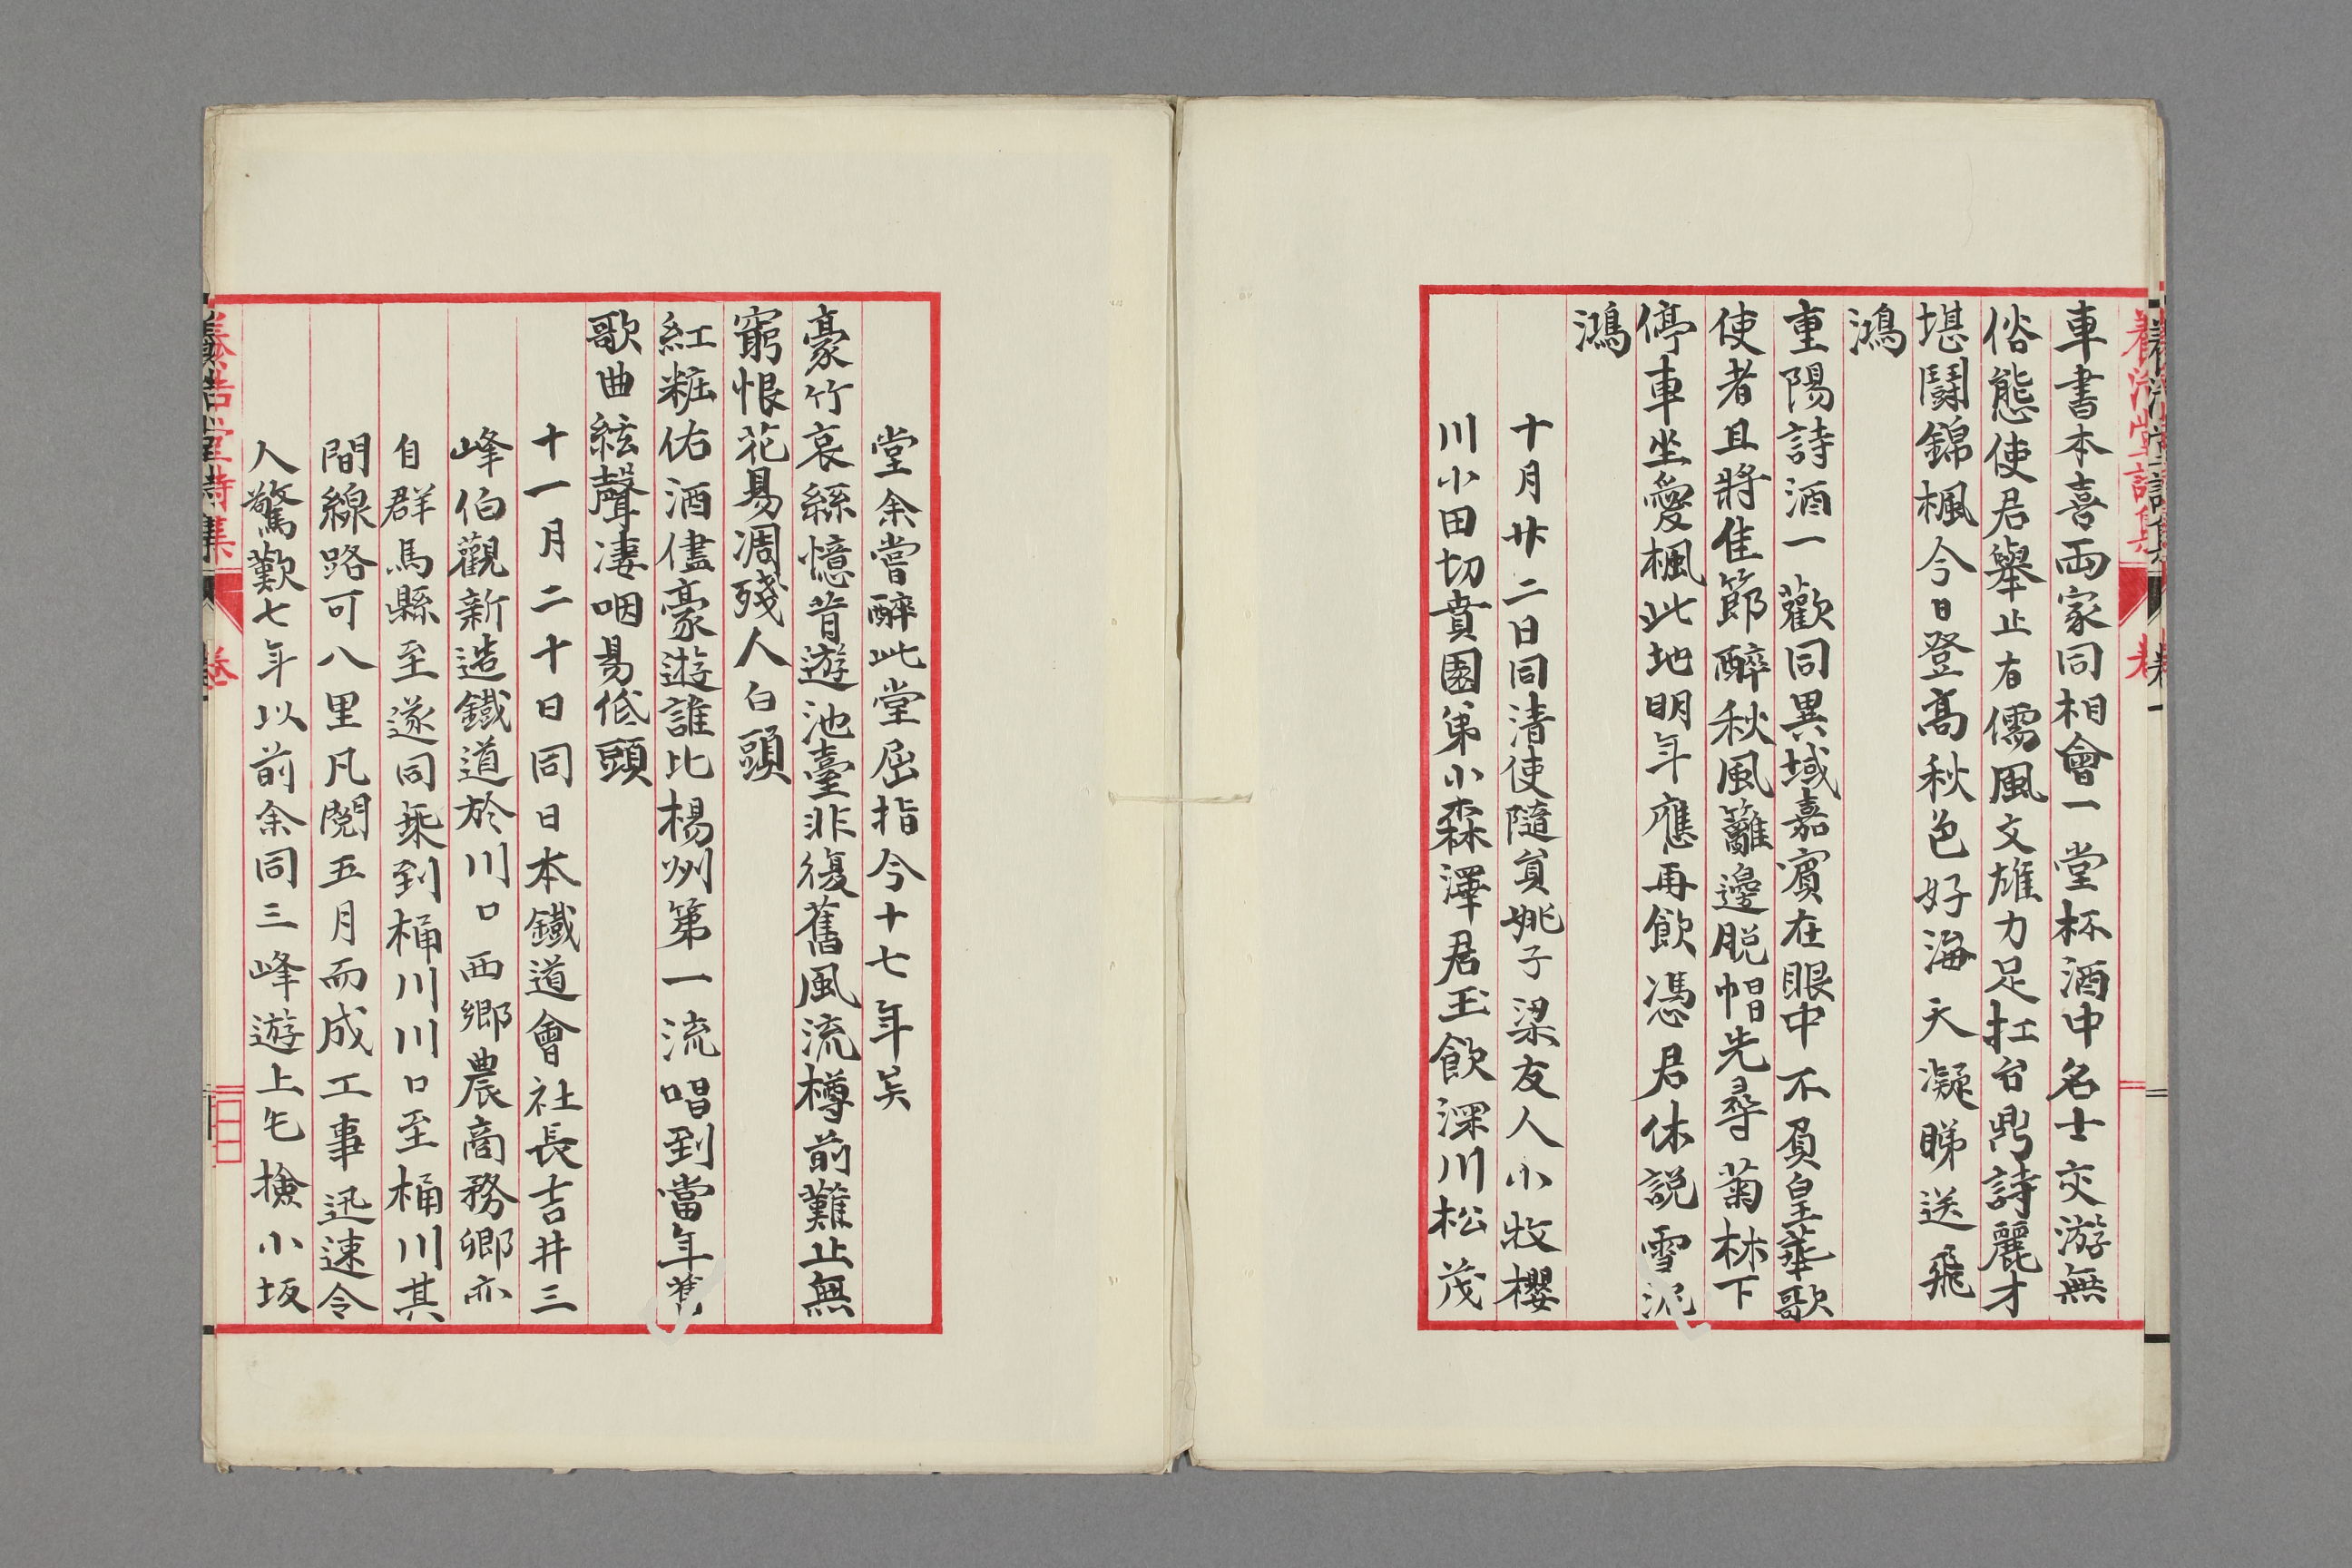 車書本喜兩家同相會一堂杯酒中名士交游無
俗態使君舉止有儒風文雄力足扛台鼎詩麗才
堪鬪錦楓今日登高秋色好海天凝睇送飛
鴻
重陽詩酒一歡同異域嘉賓在眼中不負皇華歌
使者且將佳節醉秋風籬邊脱帽先尋菊林下
停車坐愛楓此地明年應再飲憑君休説雪泥
鴻
十月廿二日同清使隨員姚子梁友人小牧櫻
川小田切賁園弟小森澤君玉飲深川松茂
堂余嘗醉此堂屈指今十七年矣
豪竹哀絲憶昔遊池臺非復舊風流樽前難止無
窮恨花易凋殘人白頭
紅粧佑酒儘豪遊誰比楊州第一流唱到當年舊
歌曲絃聲凄咽易低頭
十一月二十日同日本鐵道會社長吉井三
峰伯觀新造鐵道於川口西鄉農商務卿亦
自群馬縣至遂同乗到桶川川口至桶川其
間線路可八里凡閲五月而成工事迅速令
人驚歎七年以前余同三峰遊上毛撿小坂